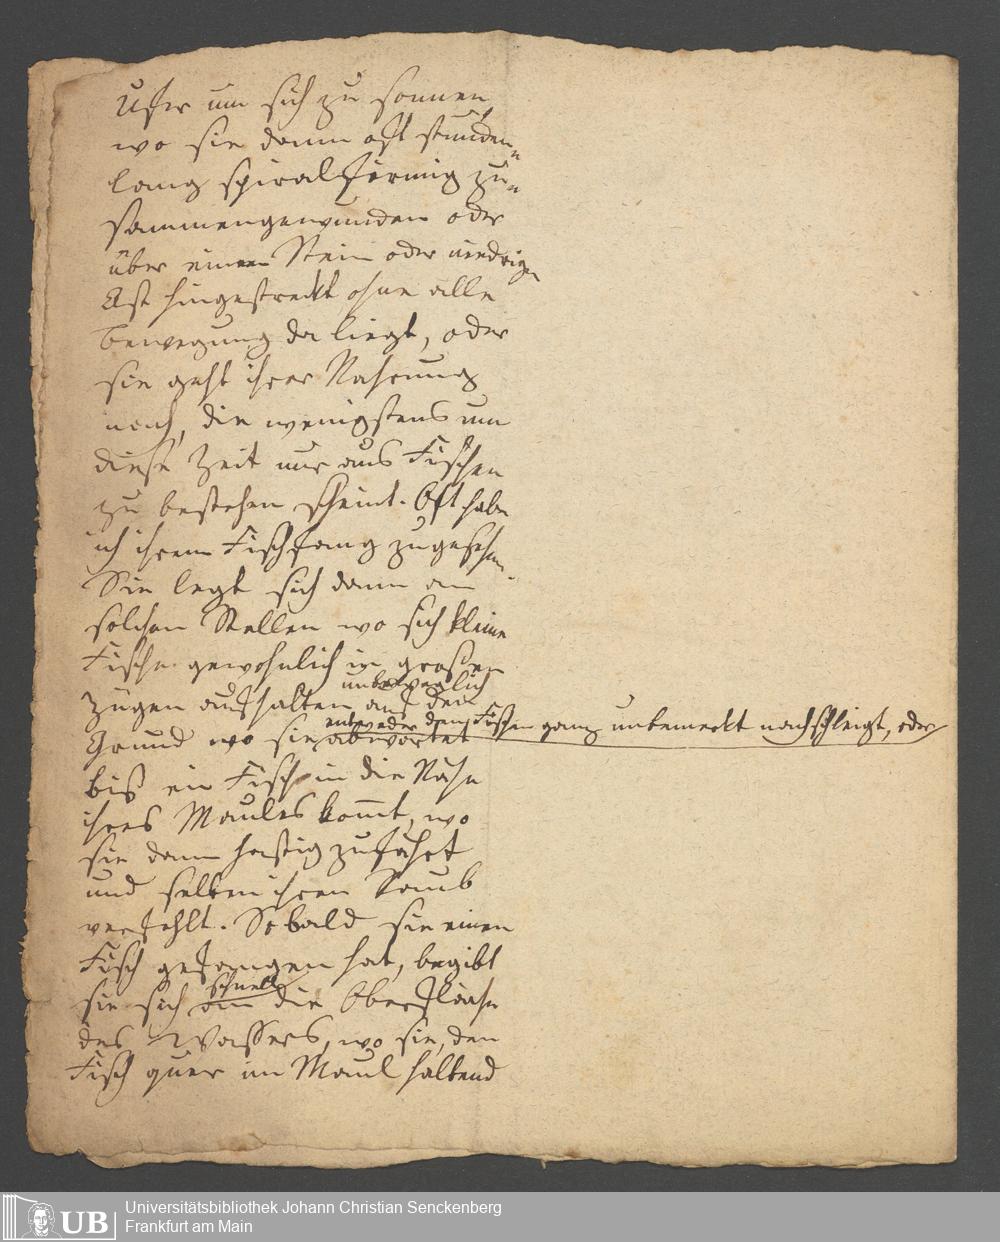 Ufer um sich zu sonnen,
wo sie dann oft stunden-
lang spiralförmig zu-
sammengewunden oder
über einen Stein oder niedrigen
Ast hingestreckt ohne alle
Bewegung da liegt, oder
sie geht ihrer Nahrung
nach, die wenigstens um
diese Zeit nur aus Fischen
zu bestehen scheint. Oft habe
ich ihrem Fischfang zugesehen.
Sie legt sich dann an
solchen Stellen wo sich kleine
Fische gewohnlich in großen
Zügen aufhalten unbeweglich auf den
Grund wo sie entweder den Fischen ganz unbemerkt nachschleigt, oder
abwartet
biß ein Fisch in die Nähe
ihres Maules kom̄t, wo
sie dann hastig zufährt
und selten ihren Raub
verfehlt. Sobald sie einen
Fisch gefangen hat, begibt
sie sich schnell an die Oberfläche
des Wassers, wo sie, den
Fisch quer im Maul haltend
UB
Universitätsbibliothek Johann Christian Senckenberg
Frankfurt am Main